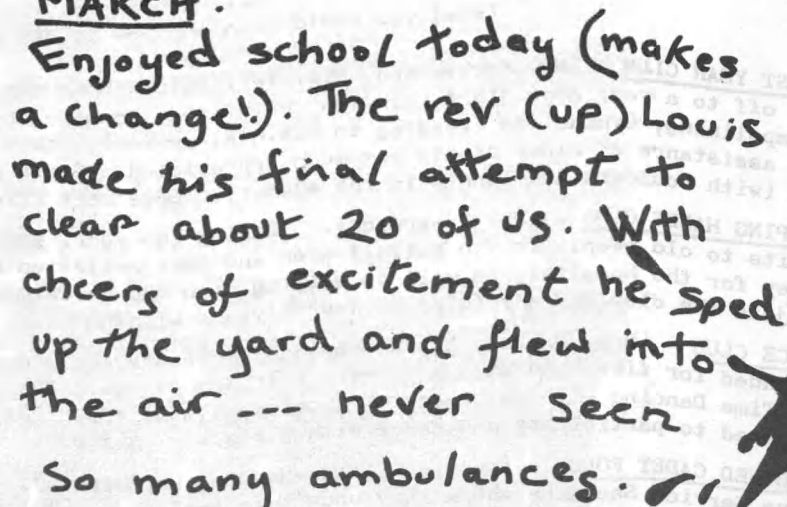 MARCH.
Enjoyed school today (makes
a change!). The rev (up) Louis
made his final attempt to
clear about 20 of us. With
cheers of excitement he sped
up the yard and flew into
the air --- never seen
so many ambulances.